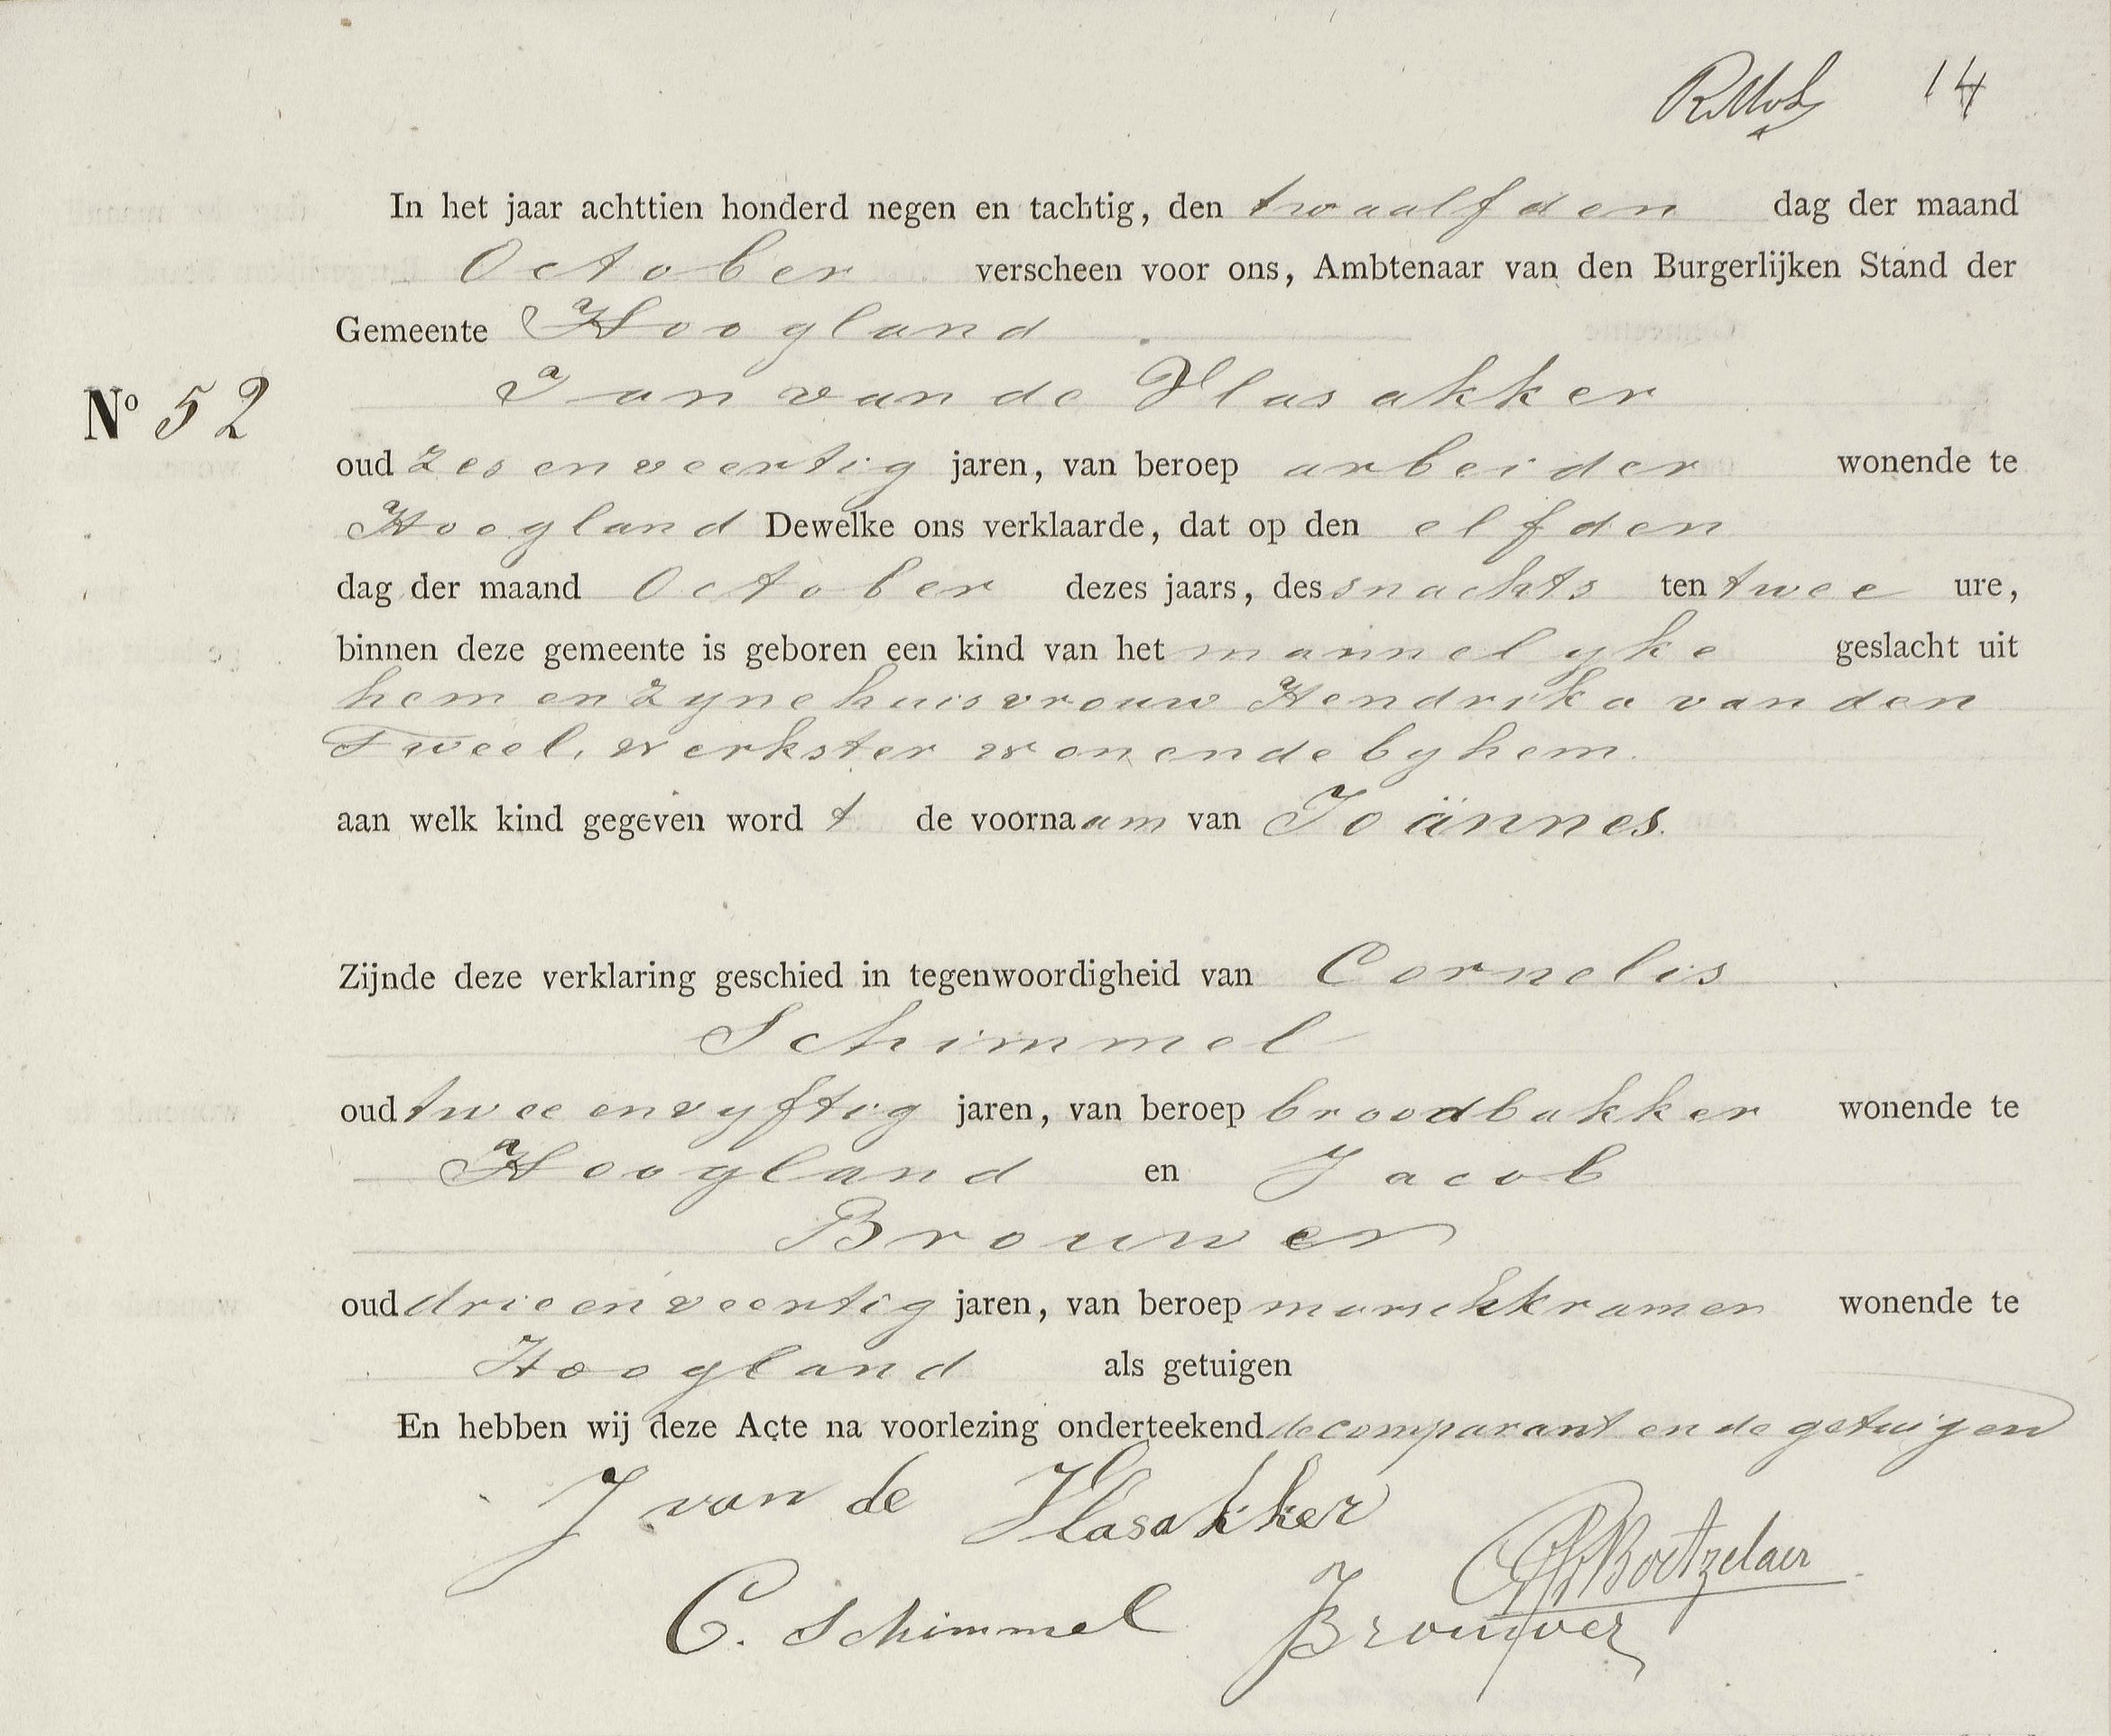 14
In het jaar achttien honderd negen en tachtig, den twaalfden dag der maand
October verscheen voor ons, Ambtenaar van den Burgerlijken Stand der
Gemeente Hoogland
Jan van de Vlasakker
No 52
oud zesenveertig jaren, van beroep arbeider wonende te
Hoogland Dewelke ons verklaarde, dat op den elfden
dag der maand October dezes jaars, des snachts ten twee ure,
binnen deze gemeente is geboren een kind van het mannelyke geslacht uit
hem en zyne huisvrouw Hendrika van den
Tweel, werkster wonende by hem.
aan welk kind gegeven word t de voornaam van Joännes.
Zijnde deze verklaring geschied in tegenwoordigheid van Cornelis
Schimmel
oud twee en vyftig jaren, van beroep broodbakker wonende te
Hoogland en Jacob
Brouwer
oud drie en veertig jaren, van beroep marschkramer wonende te
Hoogland als getuigen
En hebben wij deze Acte na voorlezing onderteekend de comparant en de getuigen
J van de Vlasakker
Boetzelaer
C. Schimmel J Brouwer